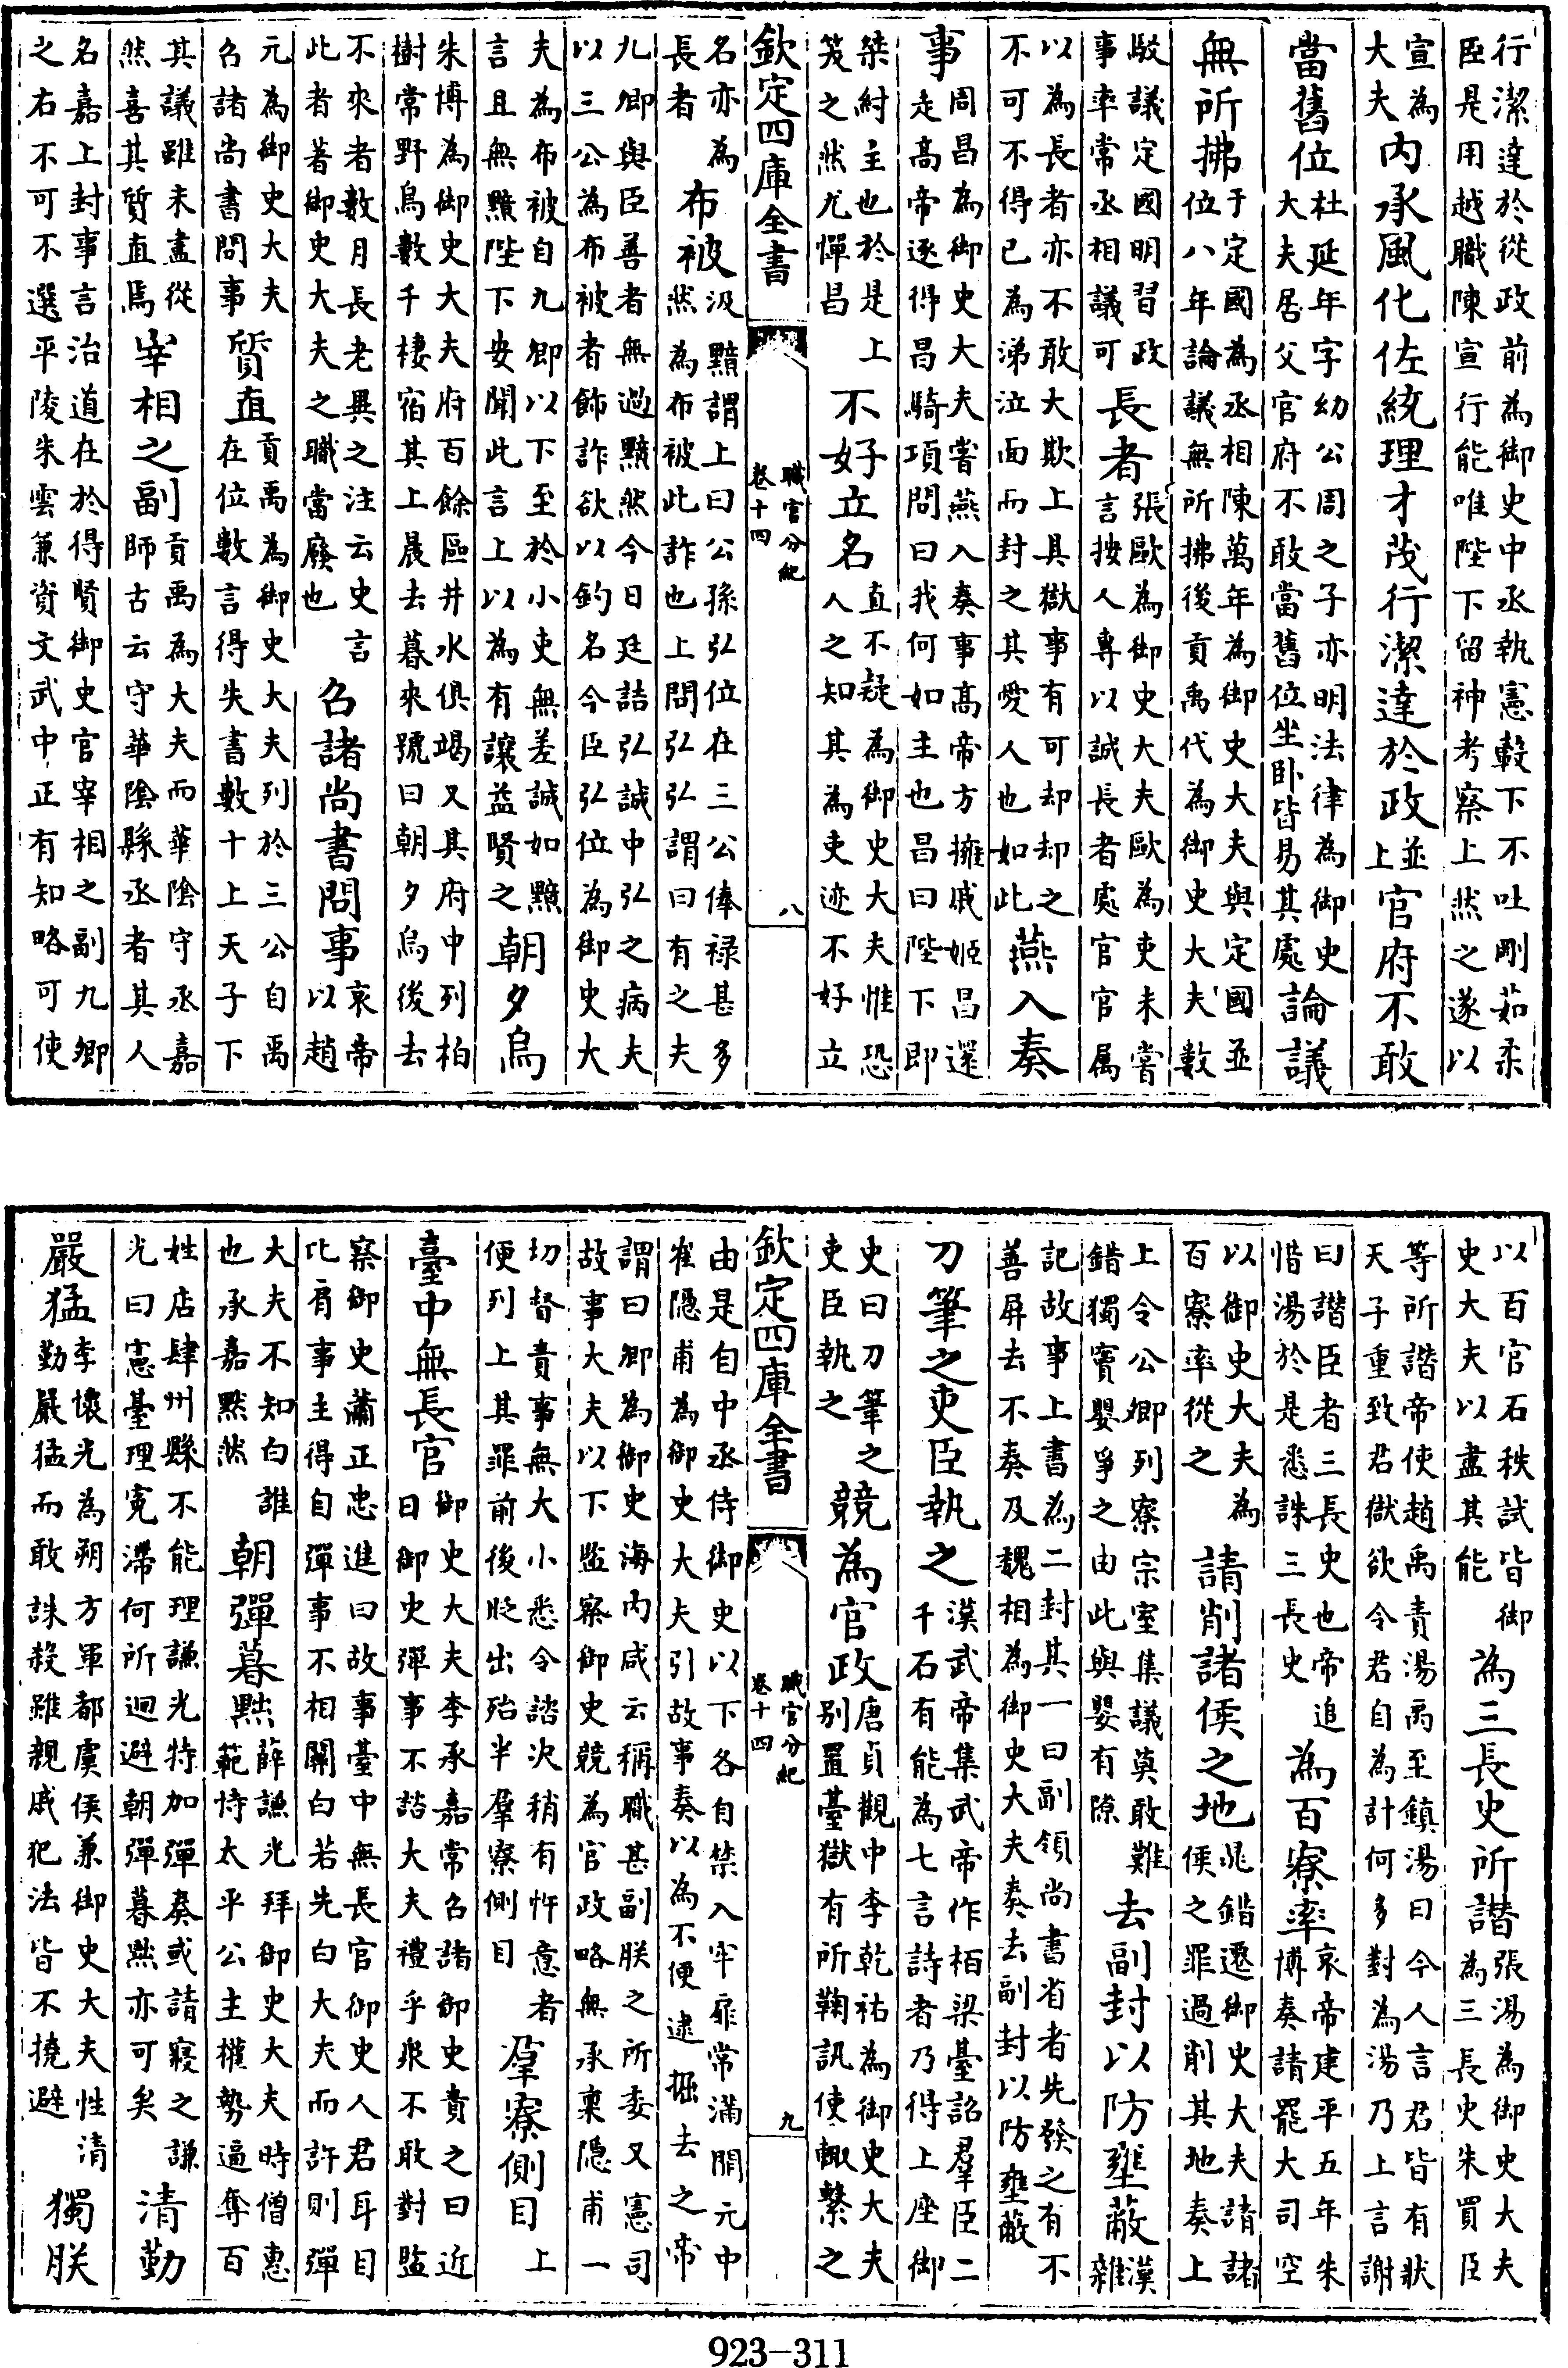 行潔達於從政前為御史中丞執憲轂下不吐剛茹柔
臣是用越職陳宣行能唯陛下留神考察上然之遂以
宣為大夫內承風化佐統理才茂行潔達於政並上官府不敢
當舊位杜延年字幼公周之子亦明法律為御史大夫居父官府不敢當舊位坐卧皆易其處論議
無所拂于定國為丞相陳萬年為御史大夫與定國並位八年論議無所拂後貢禹代為御史大夫數
駁議定國明習政事率常丞相議可長者張歐為御史大夫歐為吏未嘗言按人專以誠長者處官官属
以為長者亦不敢大欺上具獄事有可却却之不可不得已為涕泣面而封之其愛人也如此燕入奏
事周昌為御史大夫嘗燕入奏事高帝方擁戚姬昌還走高帝逐得昌騎項問曰我何如主也昌曰陛下即
桀紂主也於是上笑之然尤憚昌不好立名直不疑為御史大夫惟恐人之知其為吏迹不好立
欽定四庫全書 職官分紀 卷十四 八
名亦為長者布被汲黯謂上曰公孫弘位在三公俸祿甚多然為布被此詐也上問弘弘謂曰有之夫
九卿與臣善者無過黯然今日廷詰弘誠中弘之病夫
以三公為布被者飾詐欲以釣名今臣弘位為御史大
夫為布被自九卿以下至於小吏無差誠如黯言且無黯陛下安聞此言上以為有讓益賢之朝夕烏
朱博為御史大夫府百餘區井水俱竭又其府中列柏
樹常野烏數千棲宿其上晨去暮來號曰朝夕烏後去
不來者數月長老異之注云史言此者著御史大夫之職當廢也召諸尚書問事哀帝以趙
元為御史大夫召諸尚書問事質直貢禹為御史大夫列於三公自禹在位數言得失書數十上天子下
其議雖未盡從然喜其質直焉宰相之副貢禹為大夫而華陰守丞嘉師古云守華陰縣丞者其人
名嘉上封事言治道在於得賢御史官宰相之副九卿
之右不可不選平陵朱雲兼資文武中正有知略可使
以百官石秩試皆御史大夫以盡其能為三長史所譖張湯為御史大夫為三長史朱買臣
等所譖帝使趙禹責湯禹至鎮湯曰今人言君皆有狀
天子重致君獄欲令君自為計何多對為湯乃上言謝
曰譖臣者三長史也帝追惜湯於是悉誅三長史為百寮率哀帝建平五年朱博奏請罷大司空
以御史大夫為百寮率從之請削諸侯之地晁錯遷御史大夫請諸侯之罪過削其地奏上
上令公卿列寮宗室集議莫敢難錯獨竇嬰爭之由此與嬰有隙去副封以防壅蔽漢雜
記故事上書為二封其一曰副領尚書省者先發之有不
善屏去不奏及魏相為御史大夫奏去副封以防壅蔽
刀筆之吏臣執之漢武帝集武帝作栢梁臺詔羣臣二千石有能為七言詩者乃得上座御
史曰刀筆之吏臣執之競為官政唐貞觀中李乾祐為御史大夫別置臺獄有所鞠訊使輙繫之
欽定四庫全書 職官分紀 卷十四 九
由是自中丞侍御史以下各自禁入牢扉常滿開元中
崔隱甫為御史大夫引故事奏以為不便逮掘去之帝
謂曰卿為御史海內咸云稱職甚副朕之所委又憲司
故事大夫以下監察御史競為官政略無承稟隱甫一
切督責事無大小悉令諮決稍有忤意者便列上其罪前後貶出殆半羣寮側目羣寮側目上
臺中無長官御史大夫李承嘉常召諸御史責之曰近日御史彈事不諮大夫禮乎衆不敢對監
察御史蕭正忠進曰故事臺中無長官御史人君耳目
比肩事主得自彈事不相關白若先白大夫而許則彈
大夫不知白誰也承嘉默然朝彈暮黜薛謙光拜御史大夫時僧惠範恃太平公主權勢逼奪百
姓店肆州縣不能理謙光特加彈奏或請寢之謙光曰憲臺理寃滯何所迴避朝彈暮黜亦可矣清勤
嚴猛李懷光為朔方軍都虞侯兼御史大夫性清勤嚴猛而敢誅殺雖親戚犯法皆不撓避獨朕
923-311